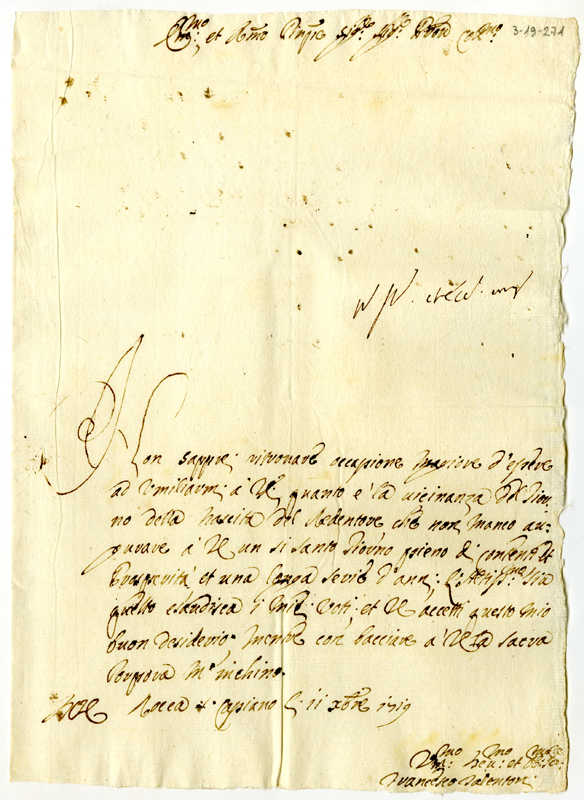 Ill.mo et R.mo Sig.re Sig.re P.ron Col.mo
3-19-271
Non sapprei ritrovare occasione magiore d'essere
ad umiliarmi à V.E. quanto è la vicinanza del Gior-
no della Nascita del Redentore che non manco au-
gurare à V.E. un si Santo Giorno pieno di contenti et
Prosperità et una longa serie d'anni: L'Altiss.mo sia
quello esaudisca i miei voti; et V.E. accetti questo mio
buon desiderio. Mentre con bacciare à V.E. la sacra
Porpora m'inchino.
Rocca Capiano li 11 Xbre 1719
V.mo Dev: et
Francesco Valentoni